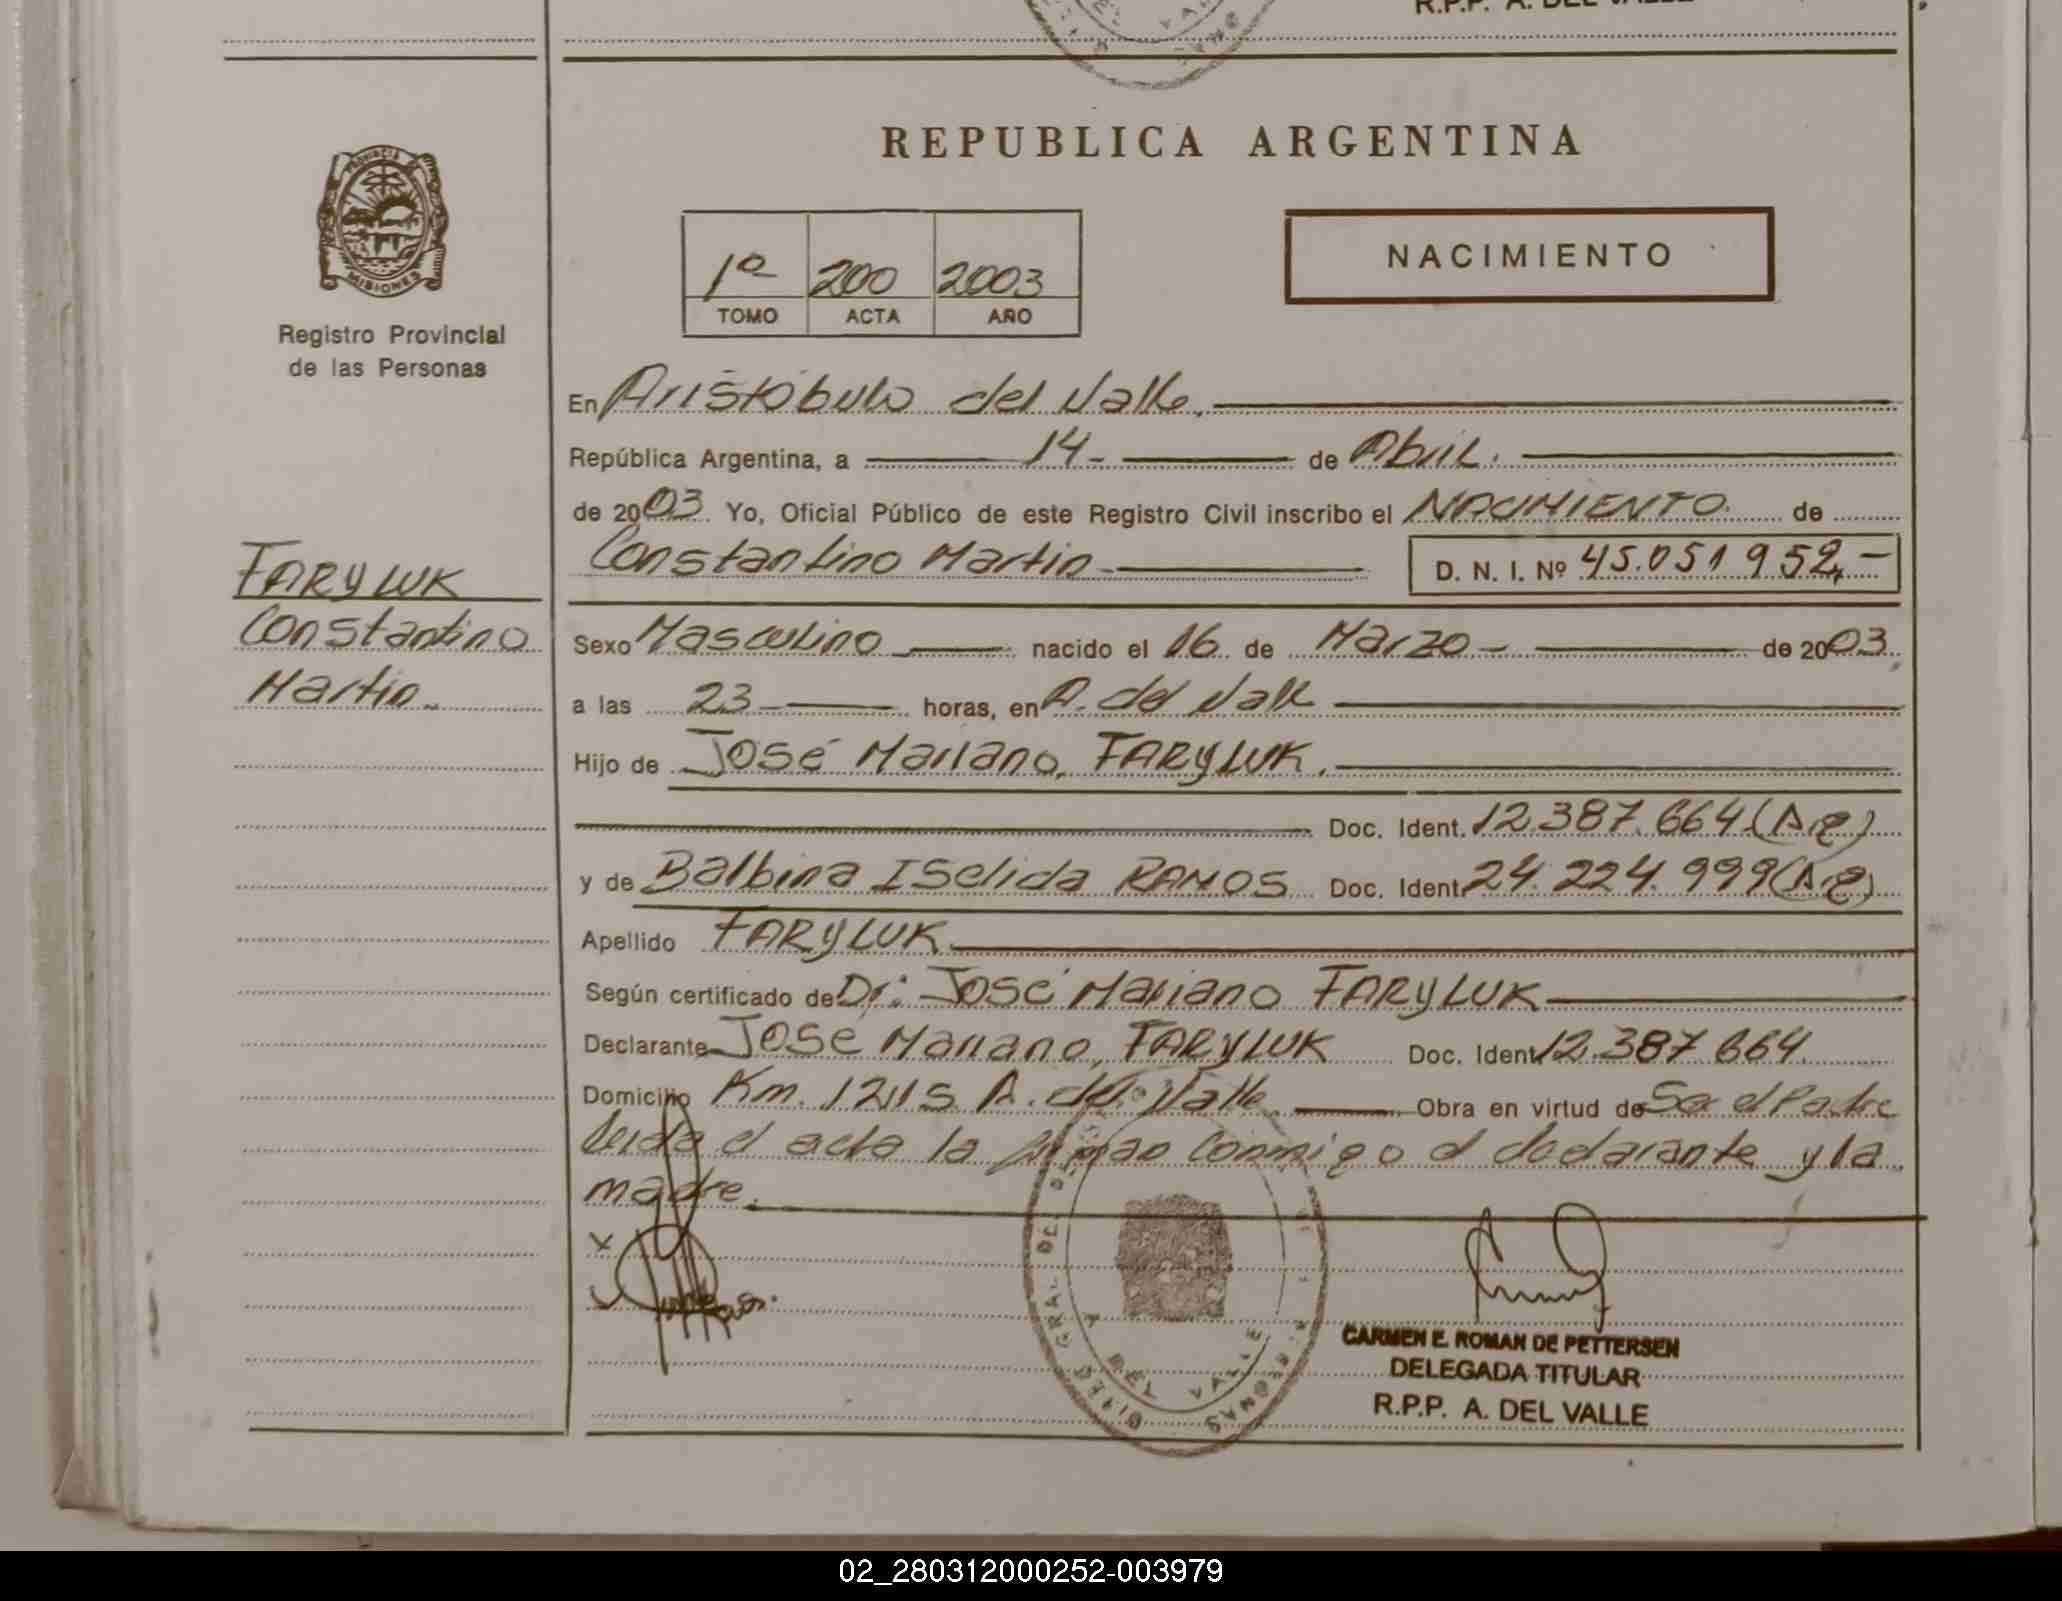 R.P.P. A. DEL VALLE
PROVINCIA DE
MISIONES
Registro Provincial
de las Personas
REPUBLICA ARGENTINA
1º 200 2003
TOMO ACTA AÑO
NACIMIENTO
En Aristóbulo del Valle.
República Argentina, a 14- de Abril.
de 2003 Yo, Oficial Público de este Registro Civil inscribo el NACIMIENTO de
Constantino Martin- D. N. I. Nº 45.051952,-
FARYLUK
Constantino
Martin.
Sexo Masculino nacido el 16 de Marzo - de 2003
a las 23 horas, en A. del Valle
Hijo de José Mariano, FARYLUK.
Doc. Ident. 12.387.664(Ar)
y de Balbina Iselida RAMOS Doc. Ident. 24.224.999(Ar)
Apellido FARYLUK
Según certificado de Dr: José Mariano FARYLUK
Declarante Jose Mariano, FARYLUK Doc. Ident. 12.387.664.
Domicilio Km. 1215 A. del Valle Obra en virtud de Ser el Padre
leida el acta la firman conmigo el declarante y la
madre.
DEL VALLE
CARMEN E. ROMAN DE PETTERSEN
DELEGADA TITULAR
R.P.P. A. DEL VALLE
02_280312000252-003979